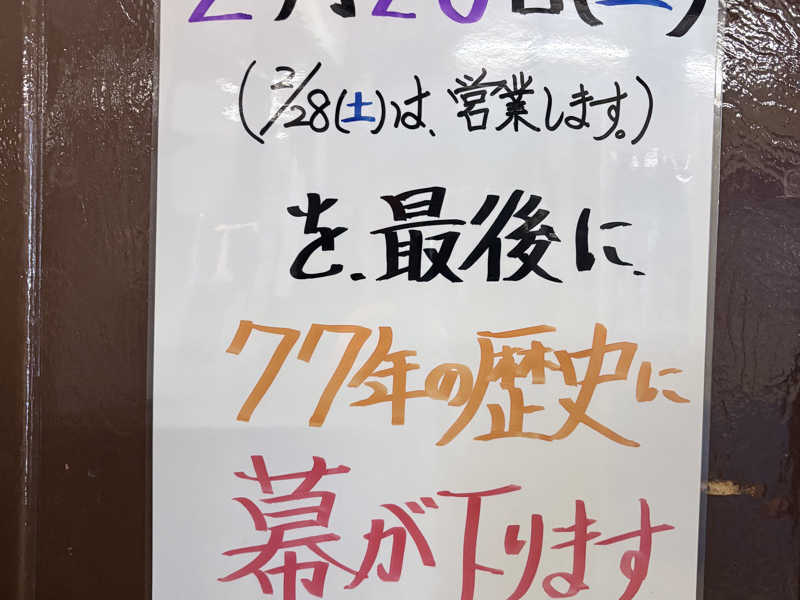 2月28日(土)
(2/28(土)は、営業します。)
を、最後に、
77年の歴史に
幕が下ります